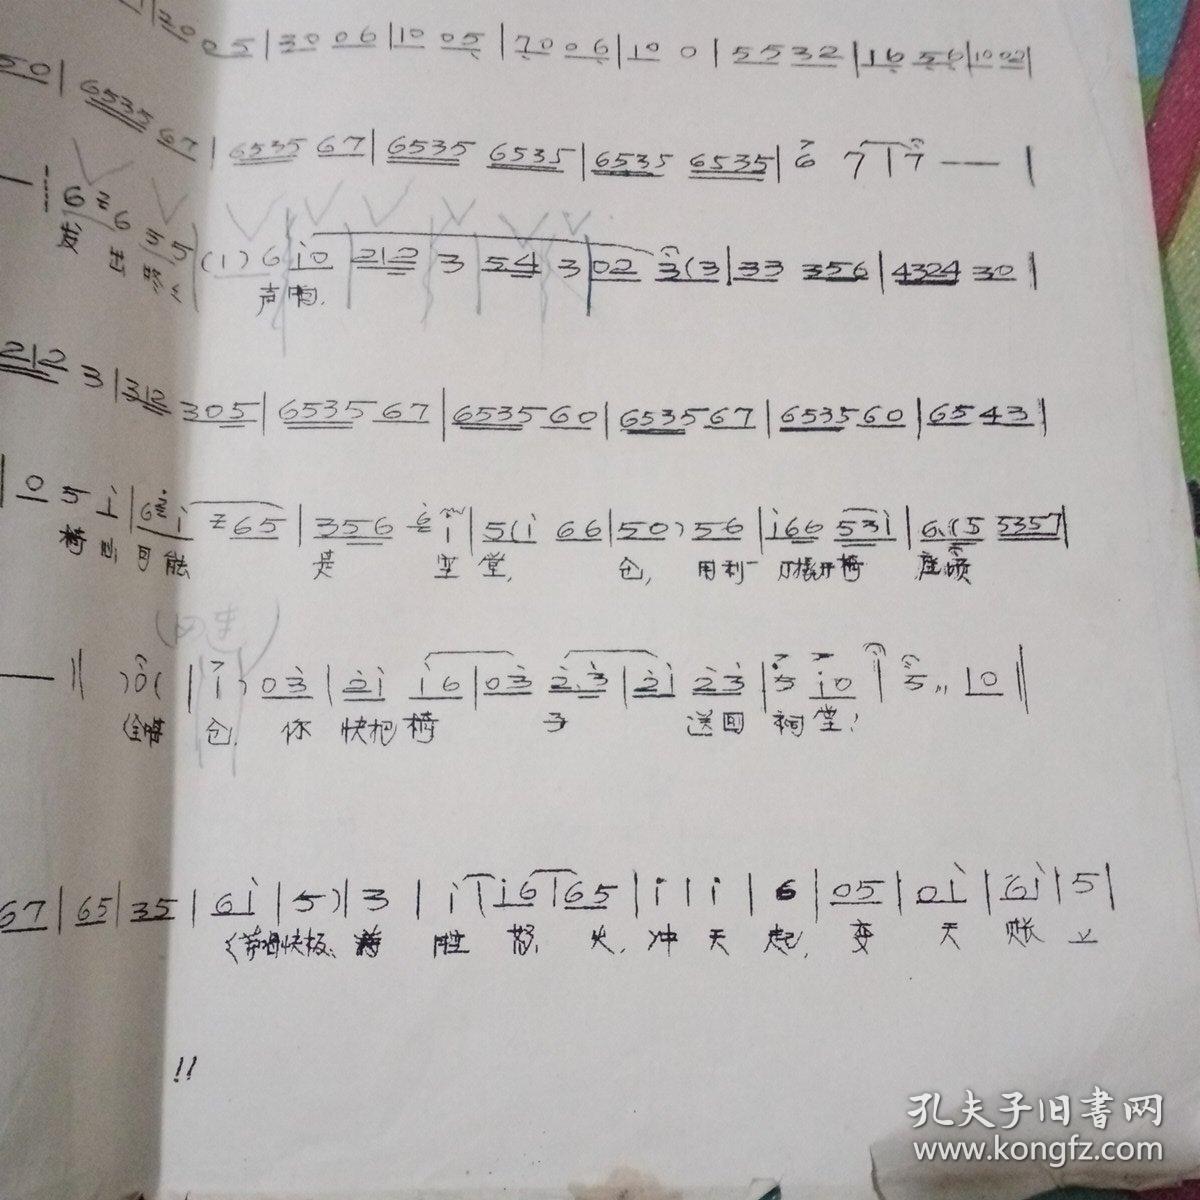 05 | 30 06 | 10 05 | 70 06 | 10 0 | 55 32 | 16 56 | 10 00 |
50 | 6535 67 | 6535 67 | 6535 6535 | 6535 6535 | 6 7 | 7 — — |
— | 6 26 35 (1) 6 i0 212 3 54 3 02 3 (3 | 33 356 | 4324 30 |
发 出 声响.
212 3 | 312 305 | 6535 67 | 6535 60 | 6535 67 | 6535 60 | 65 43 |
| 0 5 i | 6 2 i 2 65 | 356 6 i | 5 (i 66 | 50) 56 | i66 53i | 6. (5 5357 |
椅 可能 是 空 堂, 仓, 用利刀撬开椅 座顷
— || ) 0 ( | i ) 03 | 2i i6 | 03 2.3 | 2i 23 | 5 i0 i 5 ,, 10 ||
仓, 你 快把椅 子 送回 祠堂!
67 | 65 | 35 | 6i | 5) | 3 | i | i6 | 65 | i | i | 6 | 05 | 0i | 6i | 5 |
快板: 满 腔 怒 火, 冲 天 起, 变 天 账 上
!!
孔夫子旧书网
www.kongfz.com